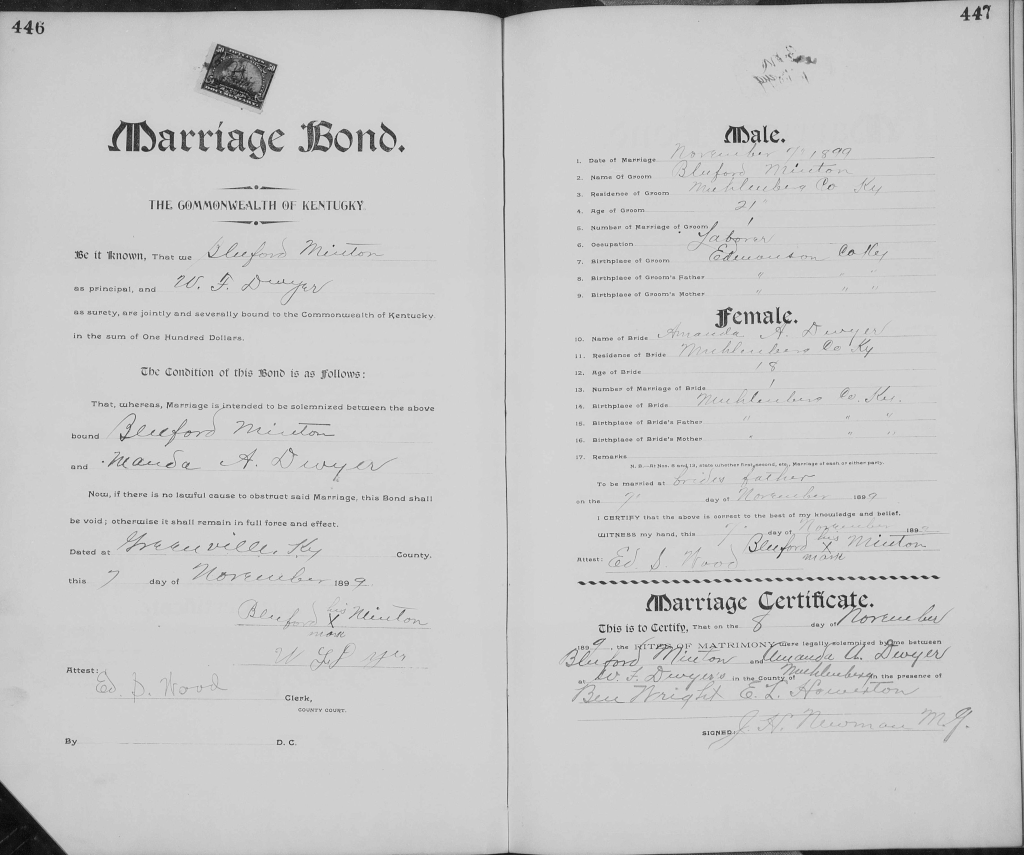 446
FIFTY CENTS
50
50
Marriage Bond.
THE COMMONWEALTH OF KENTUCKY.
Be it Known, That we Bluford Minton
as principal, and W. F. Dwyer
as surety, are jointly and severally bound to the Commonwealth of Kentucky
in the sum of One Hundred Dollars.
The Condition of this Bond is as Follows:
That, whereas, Marriage is intended to be solemnized between the above
bound Bluford Minton
and Manda A. Dwyer
Now, if there is no lawful cause to obstruct said Marriage, this Bond shall
be void; otherwise it shall remain in full force and effect.
Dated at Greenville, Ky County.
this 7 day of November 1899.
Bluford his X mark Minton
W
Attest: Ed S. Wood
Clerk,
COUNTY COURT.
By D. C.
447
Male.
1. Date of Marriage November 7 1899
2. Name Of Groom Bluford Minton
3. Residence of Groom Muhlenberg Co Ky
4. Age of Groom 21
5. Number of Marriage of Groom 1
6. Occupation Laborer
7. Birthplace of Groom Edmonson Co Ky
8. Birthplace of Groom's Father " " "
9. Birthplace of Groom's Mother " " "
Female.
10. Name of Bride Amanda A. Dwyer
11. Residence of Bride Muhlenberg Co Ky
12. Age of Bride 18
13. Number of Marriage of Bride 1
14. Birthplace of Bride Muhlenberg Co. Ky.
15. Birthplace of Bride's Father " " "
16. Birthplace of Bride's Mother " " "
17. Remarks
N. B.—At Nos. 5 and 13, state whether first, second, etc., Marriage of each or either party.
To be married at brides father
on the 7 day of November 1899
I CERTIFY that the above is correct to the best of my knowledge and belief.
WITNESS my hand, this 7 day of November 189
Bluford his X mark Minton
Attest: Ed S. Wood
Marriage Certificate.
This is to Certify, That on the 8 day of November
1899, the RITES OF MATRIMONY were legally solemnized by me between
Bluford Minton and Amanda A. Dwyer
at W. F. Dwyer's in the County of Muhlenberg in the presence of
Ben Wright E. L. Howerton
SIGNED: J. H. Newman M.G.